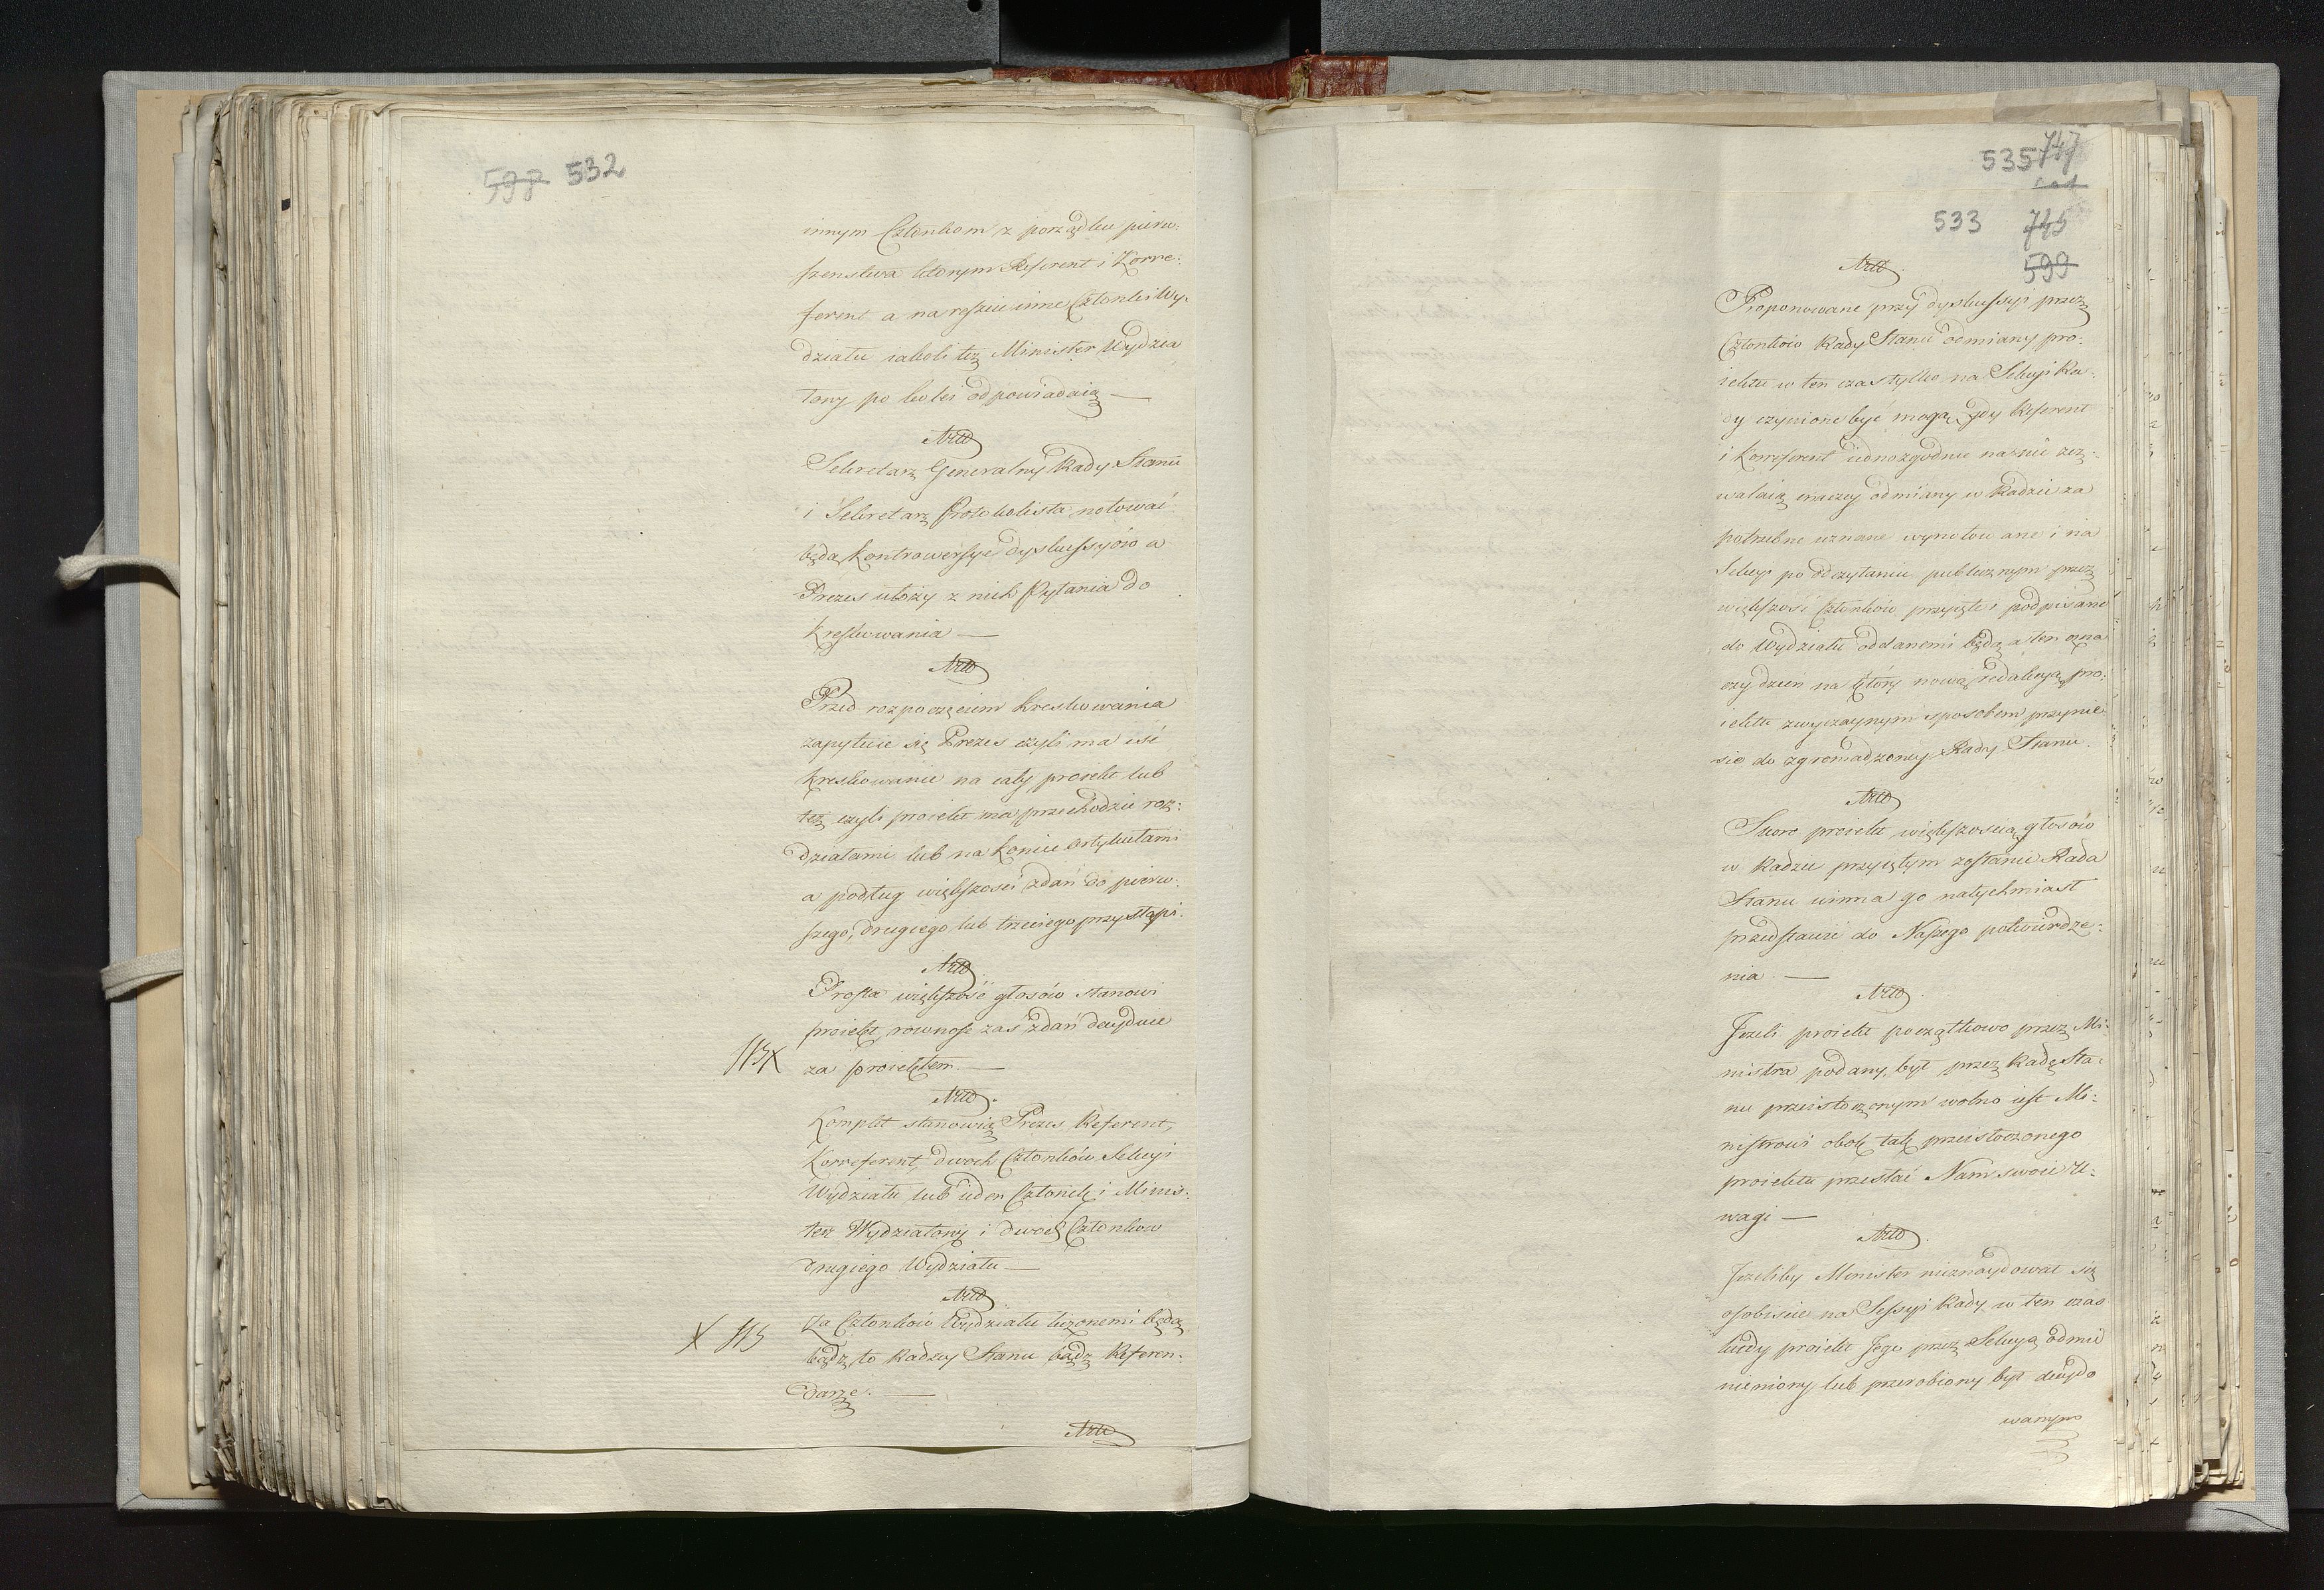 598 532
innym Członkom z porządku pierw:
szenstwa ktorym Referent i Korre:
ferent a nareszcie inne Członki Wy:
działu iakoli też Minister Wydzia
łony po kolei odpowiadaią —
Artt
Sekretarz Generalny Rady Stanu
i Sekretarz Protokolista notować
będą kontrowersye dyskussyów a
Prezes ułoży z nich Pytania do
kreskowania —
Artt
Przed rozpoczęciem kreskowania
zapytuie się Prezes czyli ma iść
kreskowanie na cały proiekt lub
też czyli proiekt ma przechodzić roz:
działami lub na koniec artykułami
a podług większosci zdań do pierw:
szego, drugiego lub trzeciego przystąpi.
Artt
Prosta większość głosów stanowi
proiekt, rownosc zas zdań decyduie
za proiektem. —
NB X
Artt
Komplet stanowią Prezes, Referent,
Korreferent, dwoch Członków Sekcyi
Wydziału lub ieden Członek i Minis:
ter Wydziałowy i dwoch Członkow
drugiego Wydziału —
Artt
X NB
Za Członków Wydziału liczonemi będą
bądz to Radzcy Stanu bądz Referen:
darze. —
Artt
535 747
533 745
599
Artt
Proponowane przy dyskussyi przez
Członków Rady Stanu odmiany pro:
iektu w ten czas tylko na Sekcyi Ra:
dy czynione być mogą, gdy Referent
i Korreferent iednozgodnie na nie zez:
walaią inaczey odmiany w Radzie za
potrzebne uznane wynotowane i na
Sekcyi po odczytaniu publicznym przez
większość Członków przyięte i podpisane
do Wydziału oddanemi będą a ten ozna
czy dzien na który nową redakcyą pro:
iektu zwyczaynym sposobem przynie
sie do zgromadzoney Rady Stanu.
Artt
Skoro proiekt większoscią głosów
w Radzie przyiętym zostanie Rada
Stanu winna go natychmiast
przedstawić do Naszego potwierdze:
nia. —
Artt
Jeżeli proiekt początkowo przez Mi:
nistra podany, był przez Radę Sta:
nu przeistoczonym wolno iest Mi:
nistrowi obok tak przeistoczonego
proiektu przesłać Nam swoie U:
wagi —
Artt
Jeżeliby Minister nieznaydował się
osobiscie na Sessyi Rady w ten czas
kiedy proiekt Jego przez Sekcyą odmie
nieniony lub przerobiony był decydo
wanym